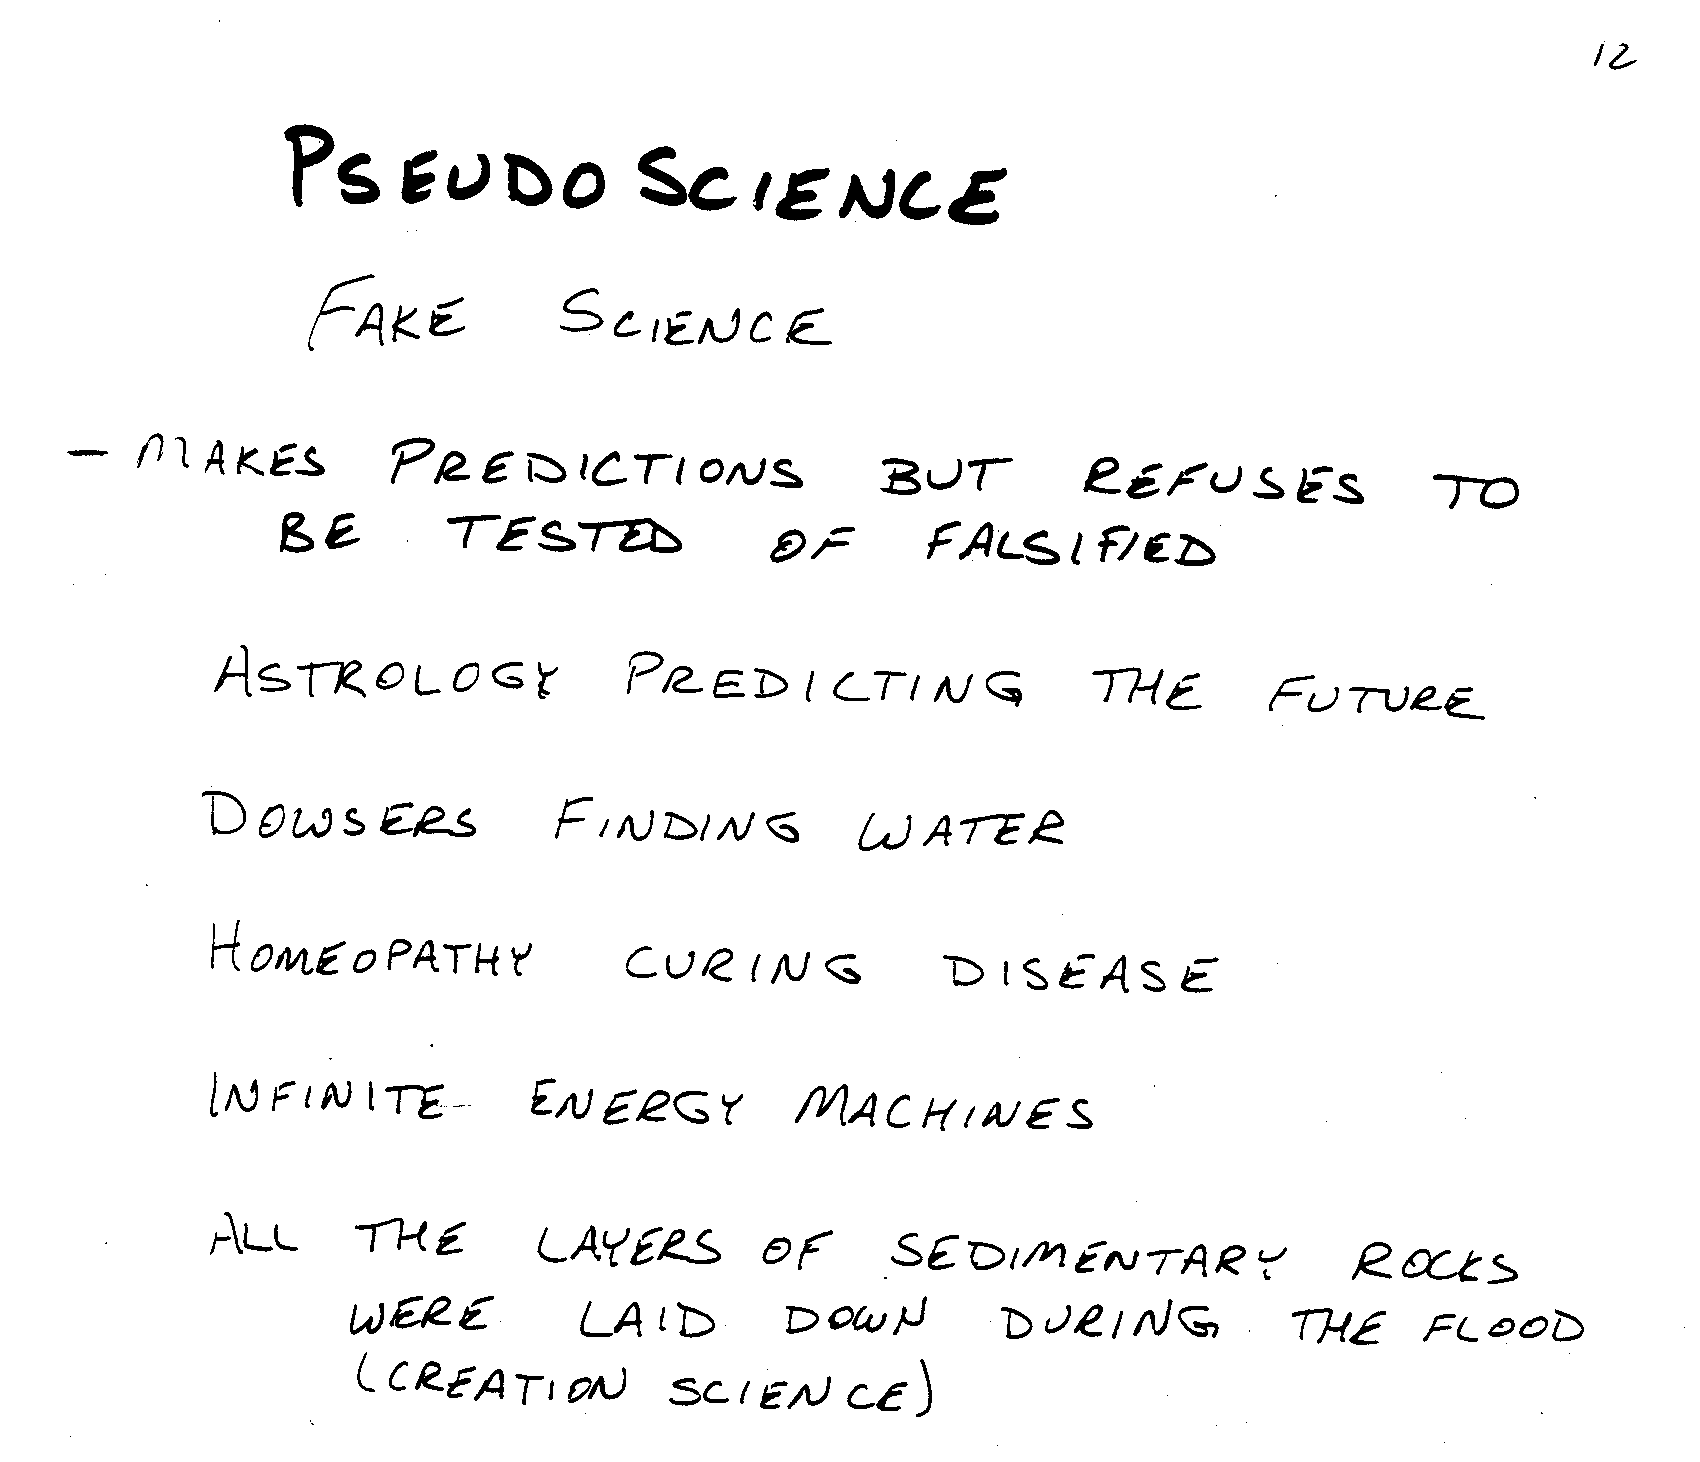 12
PSEUDO SCIENCE
FAKE SCIENCE
- MAKES PREDICTIONS BUT REFUSES TO
BE TESTED OF FALSIFIED
ASTROLOGY PREDICTING THE FUTURE
DOWSERS FINDING WATER
HOMEOPATHY CURING DISEASE
INFINITE ENERGY MACHINES
ALL THE LAYERS OF SEDIMENTARY ROCKS
WERE LAID DOWN DURING THE FLOOD
(CREATION SCIENCE)